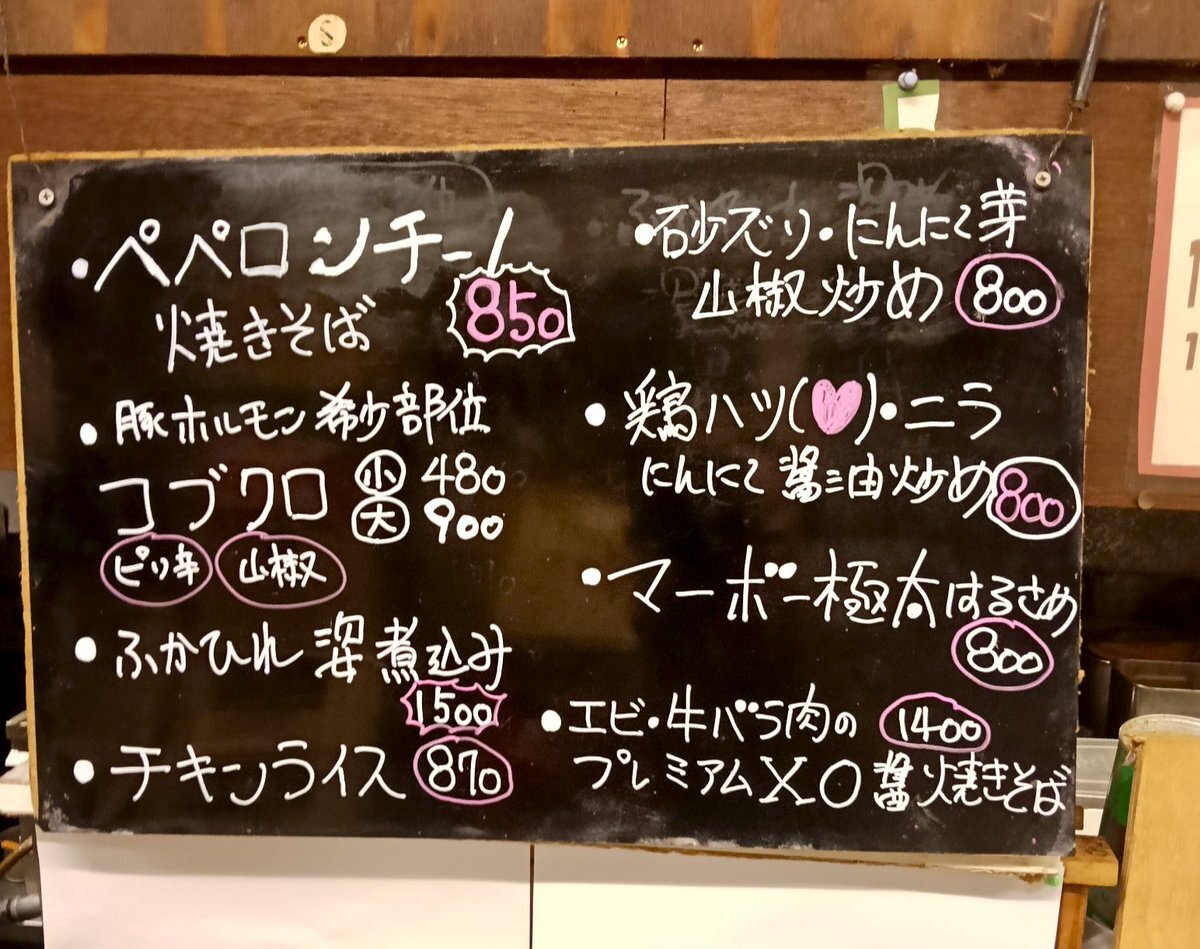 ・ペペロンチーノ
焼きそば 850
・豚ホルモン希少部位
コブクロ 小 480
大 900
ピリ辛 山椒
・ふかひれ姿煮込み
1500
・チキンライス 870
・砂ズリ・にんにく芽
山椒炒め 800
・鶏ハツ(♥)・ニラ
にんにく醤油炒め 800
・マーボー極太はるさめ
800
・エビ・牛バラ肉の 1400
プレミアムXO醤焼きそば